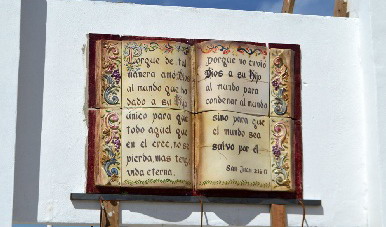 Porque de tal
manera amó Dios
al mundo que ha
dado a su hijo
único para que
todo aquel que
en el cree, no se
pierda, mas tenga
vida eterna.
porque no envió
Dios a su hijo
al mundo para
condenar al mundo
sino para que
el mundo sea
salvo por el
San Juan